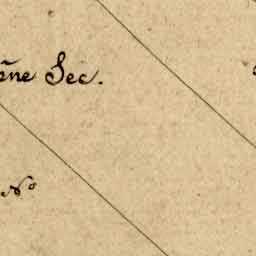 ñne Sec.
Nº